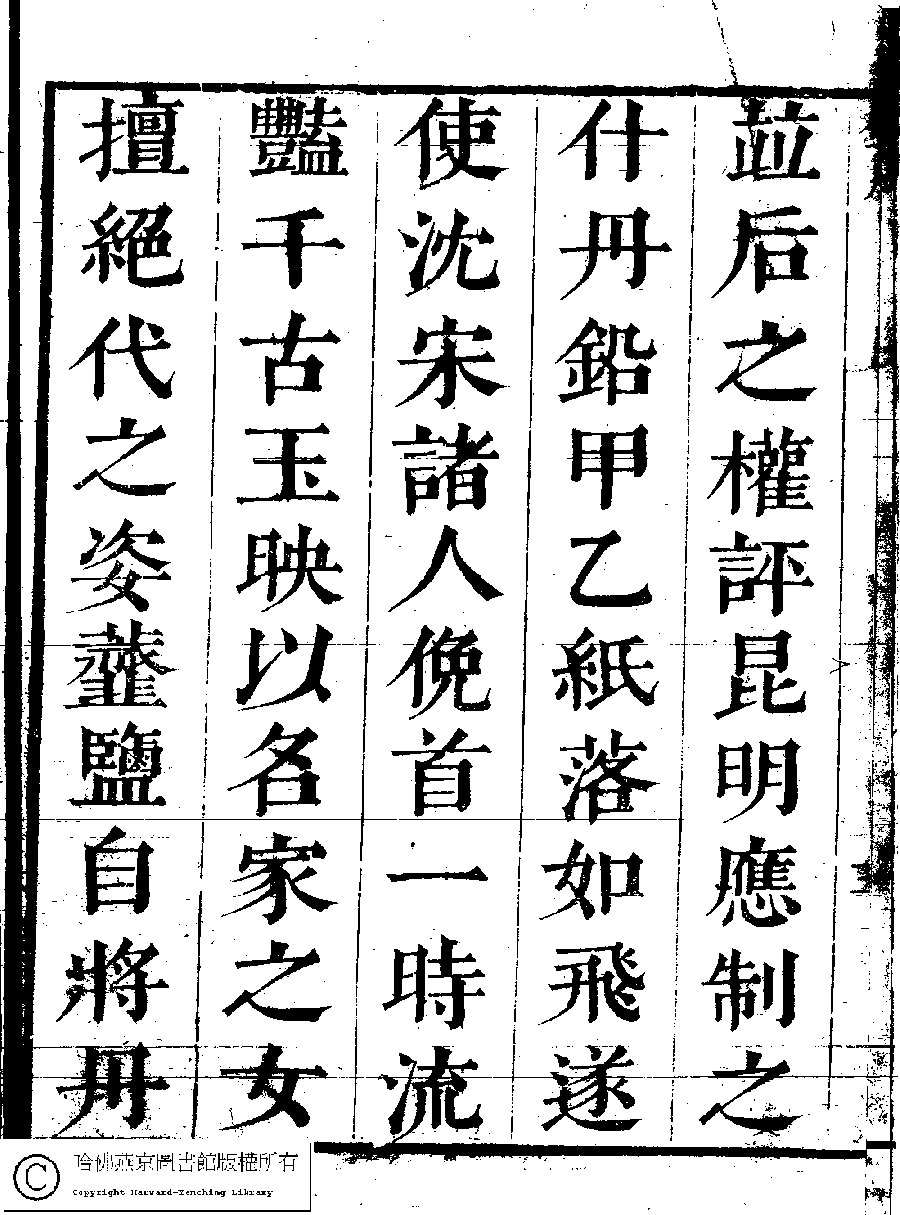 並后之權評昆明應制之
什丹鉛甲乙紙落如飛遂
使沈宋諸人俛首一時流
豔千古玉映以名家之女
擅絕代之姿虀鹽自將丹
哈佛燕京圖書館版權所有
Copyright Harvard-Yenching Library